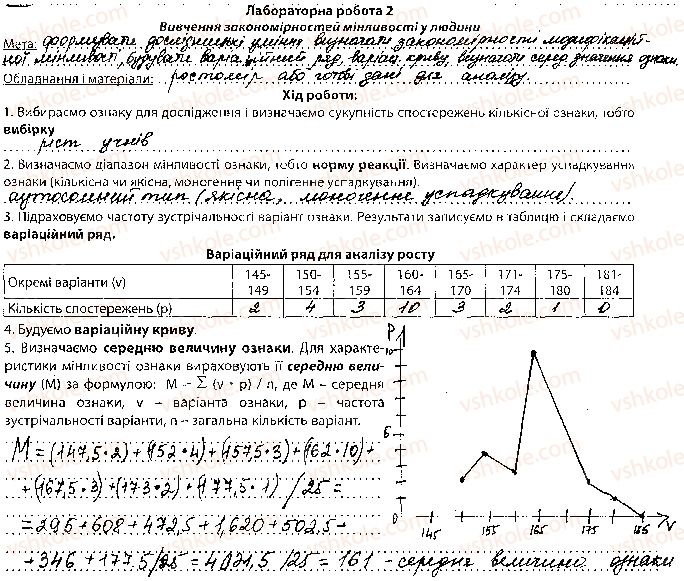 Лабораторна робота 2
Вивчення закономірностей мінливості у людини
Мета: формувати дослідницькі уміння визначати закономірності модифікацій-
ної мінливості, будувати варіаційний ряд, варіац. криву, визначати серед. значення ознаки.
Обладнання і матеріали: ростомір або готові дані для аналізу.
Хід роботи:
1. Вибираємо ознаку для дослідження і визначаємо сукупність спостережень кількісної ознаки, тобто
вибірку
ріст учнів
2. Визначаємо діапазон мінливості ознаки, тобто норму реакції. Визначаємо характер успадкування
ознаки (кількісна чи якісна, моногенне чи полігенне успадкування).
аутосомний тип (якісна, моногенне успадкування).
3. Підраховуємо частоту зустрічальності варіант ознаки. Результати записуємо в таблицю і складаємо
варіаційний ряд.
Варіаційний ряд для аналізу росту
Окремі варіанти (v) 145-149 150-154 155-159 160-164 165-170 171-174 175-180 181-184
Кількість спостережень (p) 2 4 3 10 3 2 1 0
4. Будуємо варіаційну криву.
5. Визначаємо середню величину ознаки. Для характе-
ристики мінливості ознаки вираховують її середню вели-
чину (M) за формулою: M – Σ (v • p) / n, де M – середня
величина ознаки, v – варіанта ознаки, p – частота
зустрічальності варіанти, n – загальна кількість варіант.
M = (147,5•2)+(152•4)+(157,5•3)+(162•10)+
+(167,5•3)+(173•2)+(177,5•1) / 25 =
= 295+608+472,5+1,620+502,5+
+346+177,5/25 = 4021,5/25 = 161 - середня величина ознаки
P
10
5
0
145 155 165 175 185 V
vshkole.com